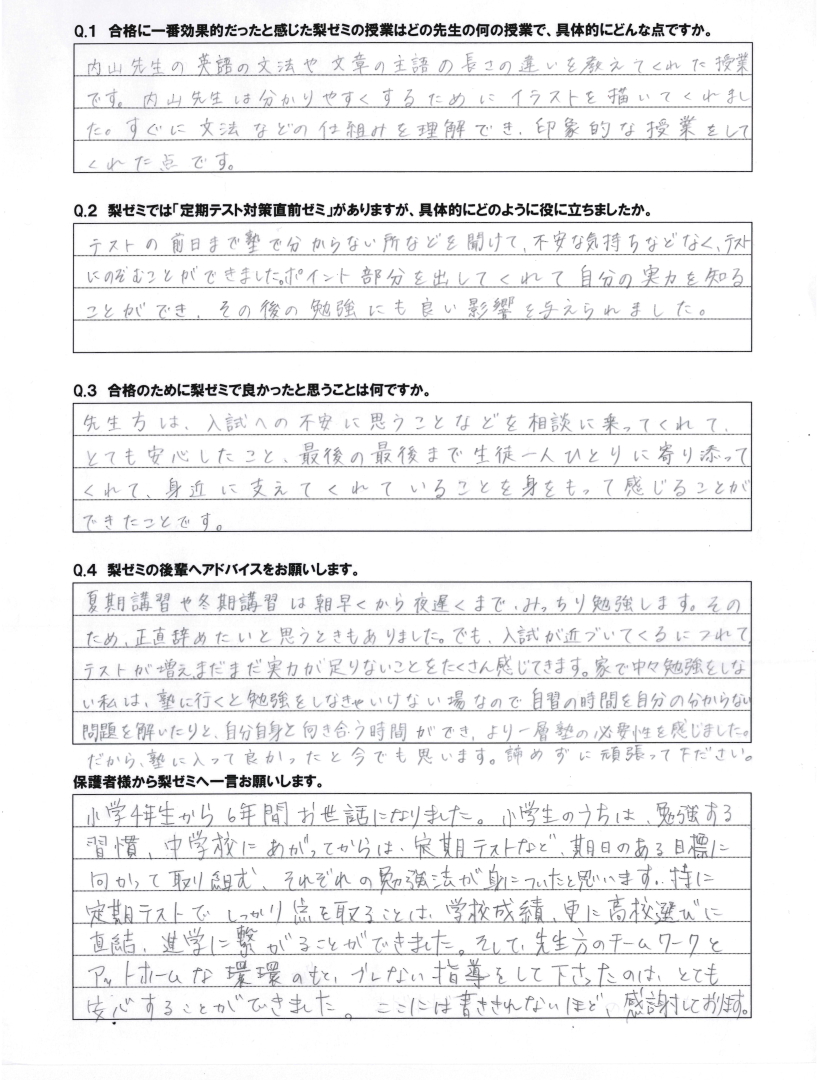 Q.1 合格に一番効果的だったと感じた梨ゼミの授業はどの先生の何の授業で、具体的にどんな点ですか。
内山先生の英語の文法や文章の主語の長さの違いを教えてくれた授業
です。内山先生は分かりやすくするためにイラストを描いてくれまし
た。すぐに文法などの仕組みを理解でき、印象的な授業をして
くれた点です。
Q.2 梨ゼミでは「定期テスト対策直前ゼミ」がありますが、具体的にどのように役に立ちましたか。
テストの前日まで塾で分からない所などを聞けて、不安な気持ちなどなく、テスト
にのぞむことができました。ポイント部分を出してくれて自分の実力を知る
ことができ、その後の勉強にも良い影響を与えられました。
Q.3 合格のために梨ゼミで良かったと思うことは何ですか。
先生方は、入試への不安に思うことなどを相談に乗ってくれて、
とても安心したこと、最後の最後まで生徒一人ひとりに寄り添って
くれて、身近に支えてくれていることを身をもって感じることが
できたことです。
Q.4 梨ゼミの後輩へアドバイスをお願いします。
夏期講習や冬期講習は朝早くから夜遅くまで、みっちり勉強します。その
ため、正直辞めたいと思うときもありました。でも、入試が近づいてくるにつれて、
テストが増えまだまだ実力が足りないことをたくさん感じてきます。家で中々勉強をしな
い私は、塾に行くと勉強をしなきゃいけない場なので自習の時間を自分の分からない
問題を解いたりと、自分自身と向き合う時間ができ、より一層塾の必要性を感じました。
だから、塾に入って良かったと今でも思います。諦めずに頑張って下ださい。
保護者様から梨ゼミへ一言お願いします。
小学4年生から6年間お世話になりました。小学生のうちは、勉強する
習慣、中学校にあがってからは、定期テストなど、期日のある目標に
向かって取り組む、それぞれの勉強法が身についたと思います。特に
定期テストでしっかり点を取ることは、学校成績、更に高校選びに
直結、進学に繋がることができました。そして、先生方のチームワークと
アットホームな環環のもと、ブレない指導をして下さったのは、とても
安心することができました。ここには書ききれないほど、感謝しております。